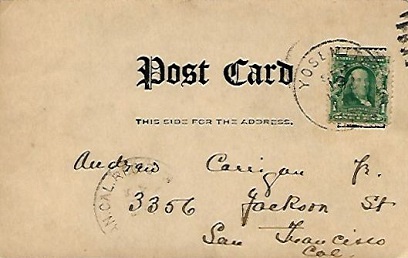 Post Card
YOSEMIT
THIS SIDE FOR THE ADDRESS.
1
Andrew Carrigan Jr.
N CAL. R
3356 Jackson St
San Francisco
Cal.